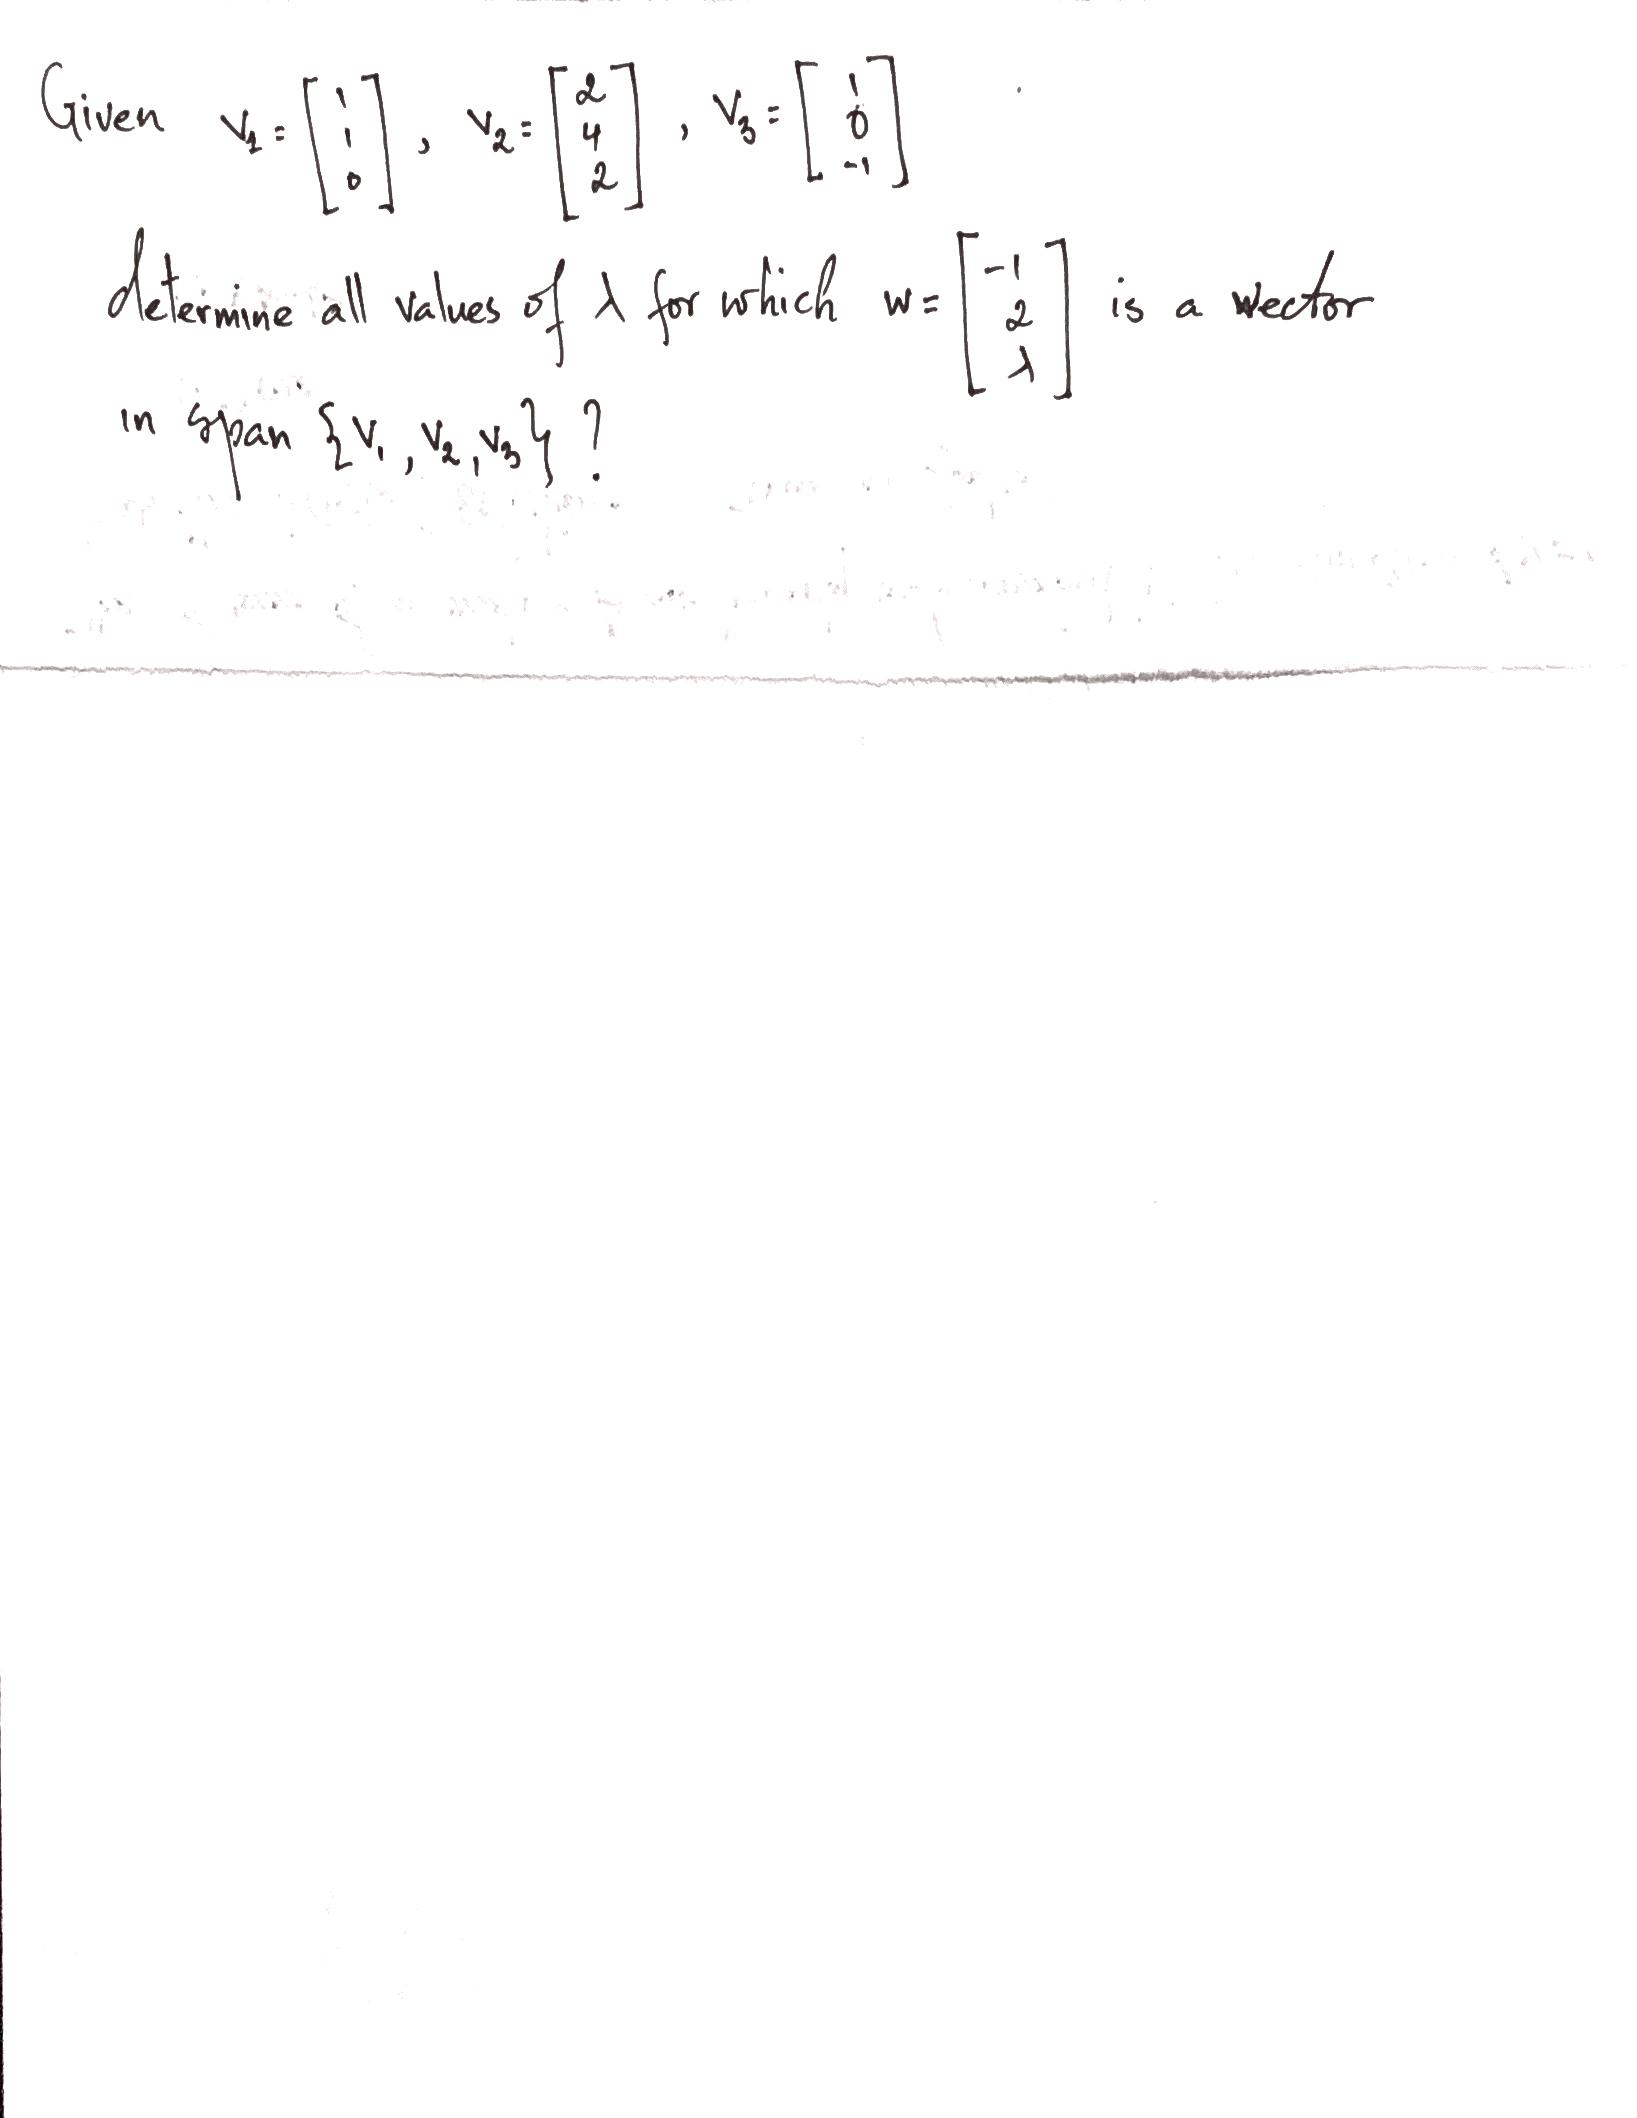 Given v₁ = [1 1 0], v₂ = [2 4 2], v₃ = [1 0 -1]
determine all values of λ for which w = [-1 2 λ] is a vector
in span {v₁, v₂, v₃} ?